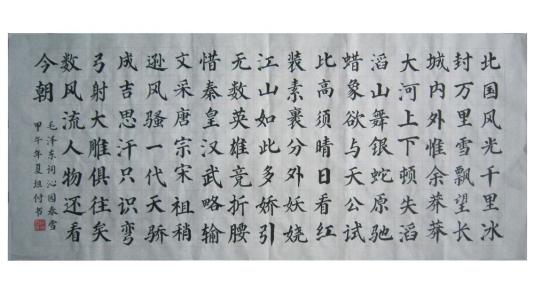 北国风光千里冰
封万里雪飘望长
城内外惟余莽莽
大河上下顿失滔
滔山舞银蛇原驰
蜡象欲与天公试
比高须晴日看红
装素裹分外妖娆
江山如此多娇引
无数英雄竞折腰
惜秦皇汉武略输
文采唐宗宋祖稍
逊风骚一代天骄
成吉思汗只识弯
弓射大雕俱往矣
数风流人物还看
今朝
毛泽东词沁园春雪
甲午年夏书